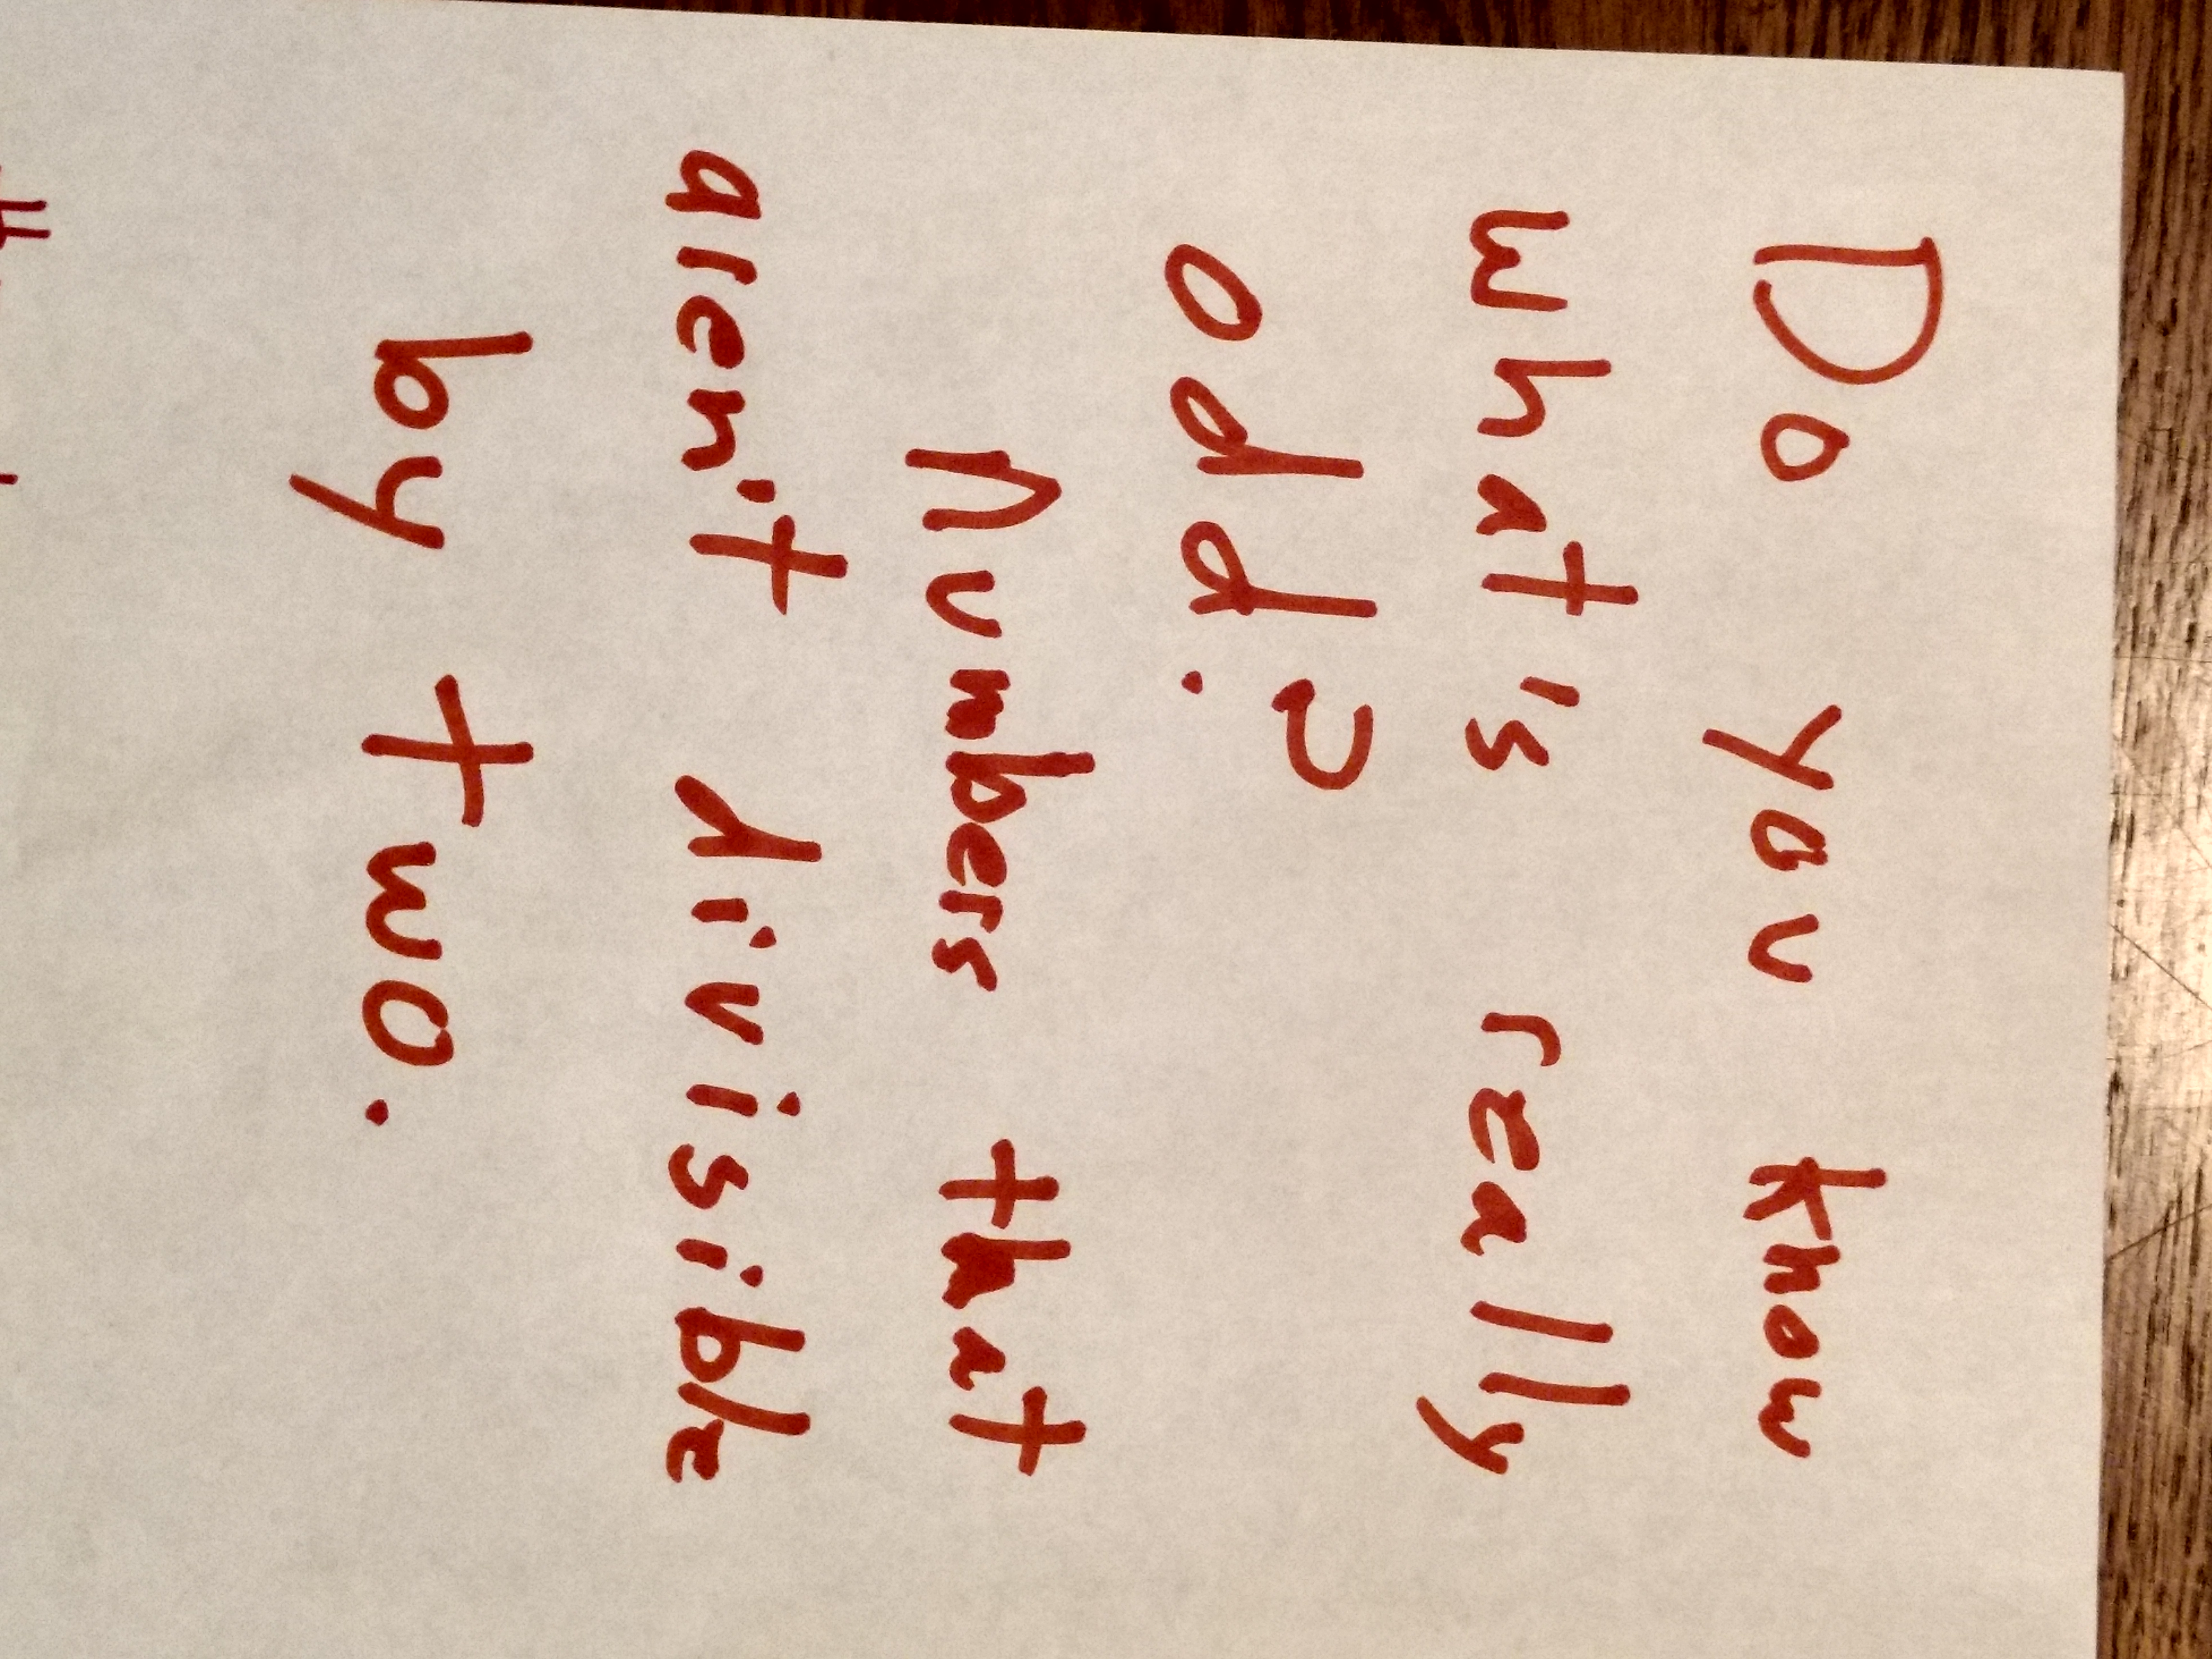 Do you know
what's really
odd?
Numbers that
aren't divisible
by two.